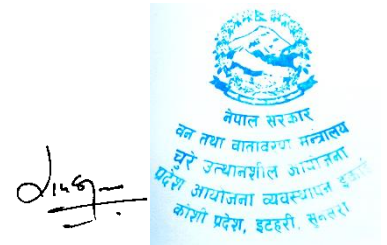 नेपाल सरकार
वन तथा वातावरण मन्त्रालय
चुरे उत्थानशील आयोजना
प्रदेश आयोजना व्यवस्थापन इकाई
कोशी प्रदेश, इटहरी, सुनसरी